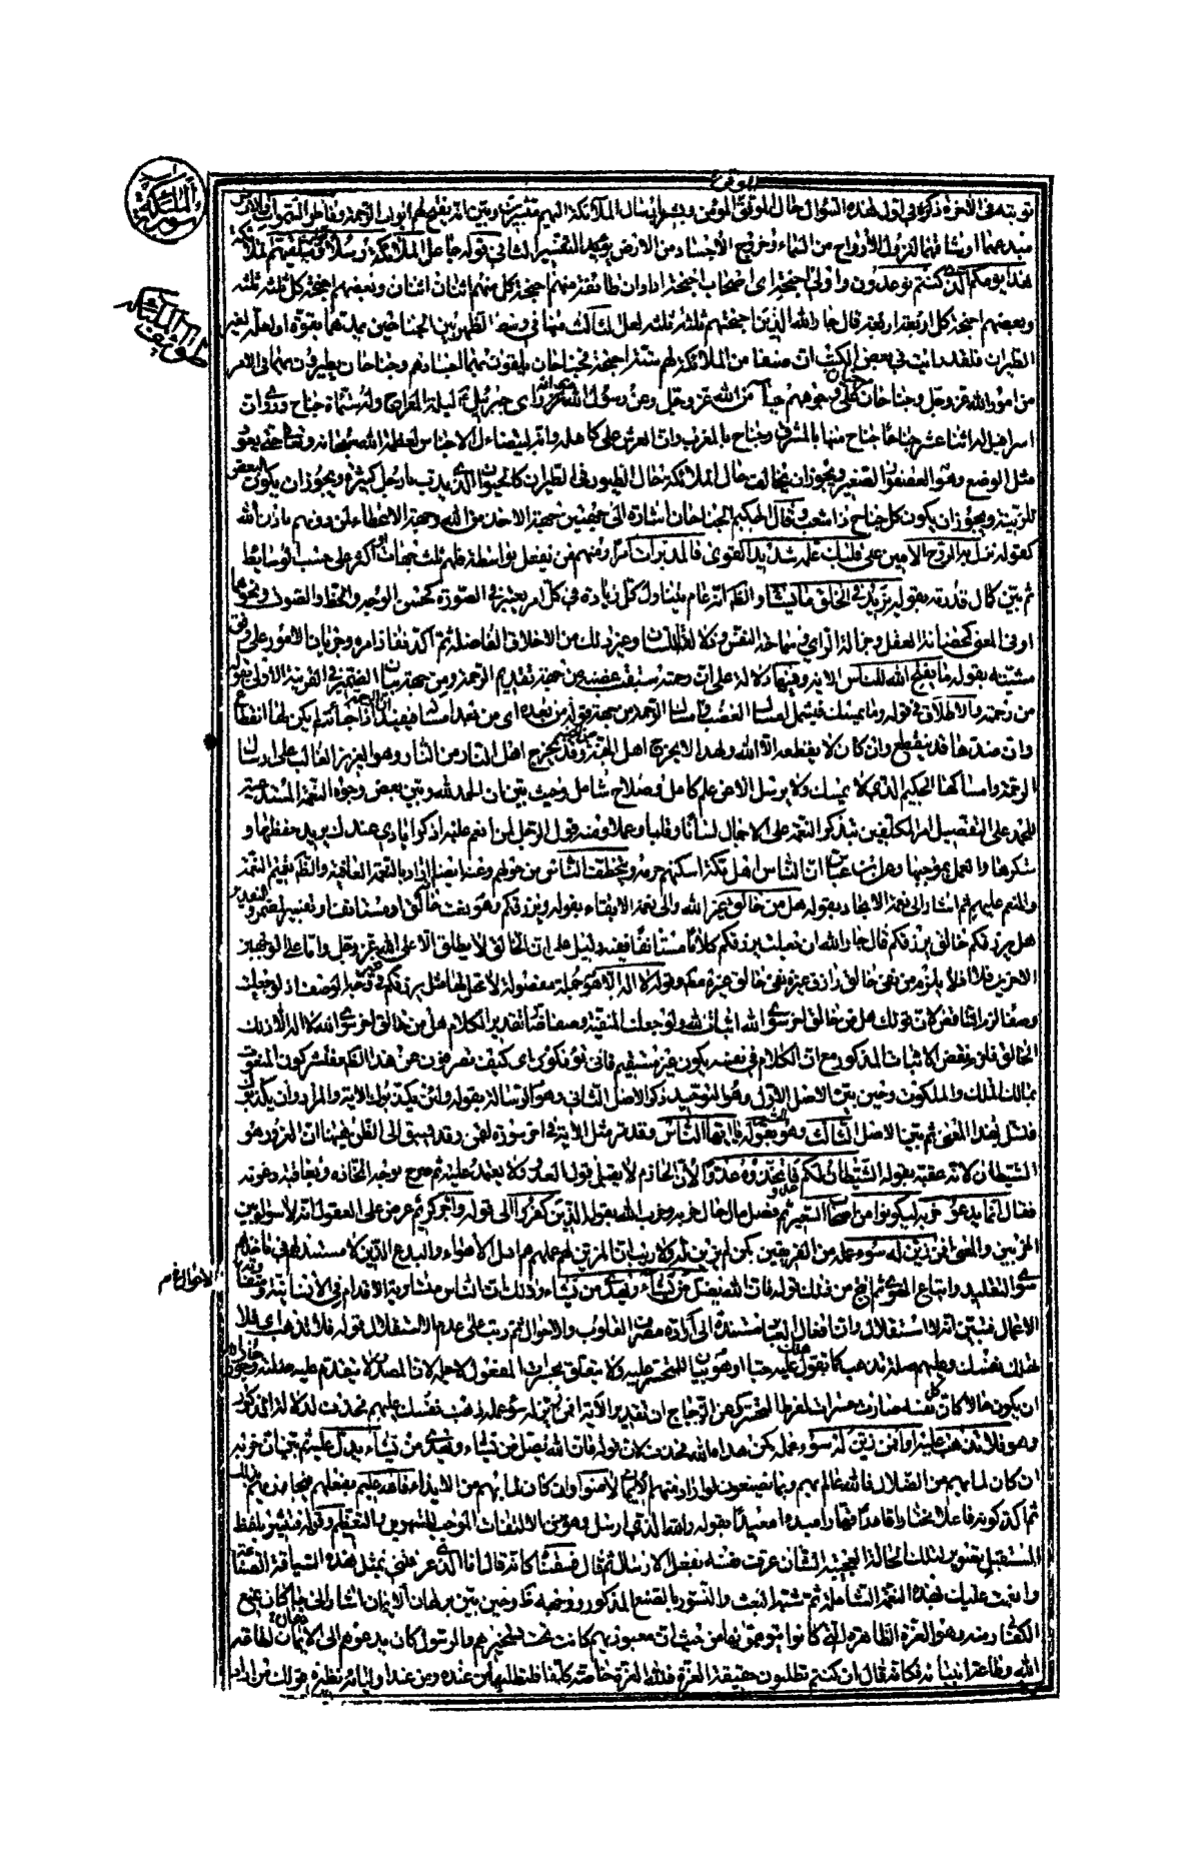 الموقن
سورة الملئكة
توبته في الآخرة ذكره في اول هذه السورة حال الموقن المؤمن وبشره بارسال الملائكة اليهم مبشرين وبين انه يفتح لهم ابواب الرحمة وفاطر السموات والارض
مبدعهما او شاقهما لنزول الأرواح من السماء وخروج الأجساد من الارض يؤيده التفسير الثاني قوله جاعل الملائكة رسلا وتتلقيهم الملائكة
هذا يومكم الذي كنتم توعدون واولي اجنحة اى اصحاب اجنحة اراد ان طائفة منهم اجنحة كل منهم اثنان اثنان وبعضهم اجنحة كل ثلثة ثلثة
وبعضهم اجنحة كل اربعة اربعة قال جار الله الذين اجنحتهم ثلثة ثلثة لعل الثالث منها في وسط الظهر بين الجناحين يمدهما بقوة او لعله لغير
الطيران فلقد رايت في بعض الكتب ان صنفا من الملائكة لهم ستة اجنحة فجناحان يلفون بهما اجسادهم وجناحان يطيرون بهما في الامر
من امور الله عز وجل وجناحان على وجوههم حياء من الله عز وجل وعن رسول الله انه راى جبرئيل ليلة المعراج وله ستماة جناح وروى ان
اسرافيل له اثنا عشر جناحا جناح منها بالمشرق وجناح بالمغرب وان العرش على كاهله وانه ليتضاءل الاحيان لعظمة الله سبحانه وتعالى حتى يعود
مثل الوصع وهو العصفور الصغير ويجوز ان يخالف حال الملائكة حال الطيور في الطيران كالحيوان الذي يدب بارجل كثيرة ويجوز ان يكون البعض
للزينة ويجوز ان يكون كل جناح ذا شعب وقال الحكيم الجناحان اشارة الى جهتين جهة الاخذ من الله وجهة الاعطاء لمن دونهم باذن الله
كقوله نزل به الروح الامين على قلبك علمه شديد القوى فالمدبرات امرا ومنهم من يفعل بواسطة فلهم ثلث جهات او اكثر على حسب الوسايط
ثم بين كمال قدرته بقوله يزيد في الخلق ما يشاء والظاهر انه عام يتناول كل زيادة في كل امر يعتبر في الصورة كحسن الوجه والخط والصوت ونحوها
او في المعنى كحصافة العقل وجزالة الراي وسماحة النفس وذلاقة اللسان وغير ذلك من الاخلاق الفاضلة ثم اكد نفاذ امره وجريان الامور على وفق
مشيئته بقوله ما يفتح الله للناس الاية وفيها دلالة على ان رحمته سبقت غضبه من جهة تقديم الرحمة ومن جهة بيان الضمير في القرينة الاولى بقوله
من رحمة والاطلاق في قوله وما يمسك فيشمل امساك الغضب وامساك الرحمة ومن جهة قوله من بعده اى من بعد امساكه
وان ضدها قد ينقطع وان كان لا يقطعه الا الله ولهذا لا يخرج اهل الجنة وقد يخرج اهل النار من النار وهو العزيز الغالب على ارسال
الرحمة وامساكها الحكيم الذي لا يمسك ولا يرسل الا عن علم كامل وصلاح شامل وحيث بين ان الحمد لله وبين بعض وجوه النعمة المستدعية
للحمد على التفصيل امر المكلفين بتذكر النعمة على الاجمال لسانا وقلبا وعملا ومنه قول الرجل لمن انعم عليه اذكر ايادى عندك يريد حفظها و
شكرها والعمل بموجبها وعن ابن عباس ان الناس اهل مكة اسكنهم حرمه ويتخطف الناس من حولهم وعنه ايضا اراد بالنعمة العافية والظاهر تعميم النعمة
والمنعم عليهم ثم اشار الى نعمة الايجاد بقوله هل من خالق غير الله والى نعمة الابقاء بقوله ويرزقكم وهو نعت خالق او مستانف او تفسير لمضمر والتقدير
هل يرزقكم خالق يرزقكم قال جار الله ان جعلت يرزقكم كلاما مستانفا ففيه دليل على ان الخالق لا يطلق الا على الله عز وجل واما على الوجهين
الاخرين فلا اذ لا يلزم من نفى خالق رازق غيره نفى خالق غيره مطلقا وقوله لا اله الا هو جملة مفصولة لا محل لها مثل يرزقكم في وجه الوصف اذ لو جعلت
وصفا لزم التناقض لان قولك هل من خالق اخر سوى الله اثبات لله ولو جعلت المنفية وصفا صار تقدير الكلام هل من خالق اخر سوى الله لا اله الا ذلك
الخالق فلزم نقض الاثبات المذكور مع ان الكلام في نفسه يكون غير مستقيم فانى تؤفكون اى كيف تصرفون عن هذا الظاهر فتشركون المنحوت
بمالك الملك والملكوت وحين بين الاصل الاول وهو التوحيد ذكر الاصل الثاني وهو الرسالة بقوله وان يكذبوك الاية والمراد وان يكذبوك
فتسل بهذا المعنى ثم بين الاصل الثالث وهو بقوله يا ايها الناس وقد مر مثل الاية في اخر سورة لقمن وقد يسبق الى الظن هيهنا ان الغرور هو
الشيطان لانه عقبه بقوله ان الشيطان لكم عدو فاتخذوه عدوا لان الحازم لا يقبل قول العدو ولا يعتمد عليه ثم صرح بوجه اتخاذه وبعاقبة دعوته
فقال انما يدعو حزبه ليكونوا من اصحاب السعير ثم فصل مال حال حزبه وحزب الله بقوله الذين كفروا الى قوله واجر كبير ثم عرض على العقول انه لا سواء بين
الحزبين والمعنى افمن زين له سوء عمله من الفريقين كمن لم يزين له ولا ريب ان المزين لهم عملهم هم اهل الأهواء والبدع الذين لا مستند لهم في ماخذهم
سوى التقليد واتباع الهوى ثم انتج من ذلك قوله فان الله يضل من يشاء ويهدى من يشاء وذلك ان الناس متساوية الاقدام في الانسانية
الاعمال فتبين انه لا استقلال وان افعال العباد مستندة الى ارادة مصرف القلوب والاحوال ثم رتب على عدم الاستقلال قوله فلا تذهب اى فلا
تهلك نفسك وعليهم صلة تذهب كما تقول هلك عليه حبا او هو بيان للمتحسر عليه ولا يتعلق بحسرات المفعول لاجله لان المصدر لا يتقدم عليه صلته وجوز
ان يكون حالا كان كل نفسه صارت حسرات لفرط التحسر وعن الزجاج ان تقدير الآية افمن زين له سوء عمله ذهبت نفسك عليهم فحذف لدلالة المذكور
وهو فلا تذهب عليه او افمن زين له سوء عمله كمن هداه الله فحذف لان قوله فان الله يضل من يشاء ويهدى من يشاء يدل عليه ثم بين ان حزنه
ان كان لما بهم من الضلال فالله عالم بهم وبما يصنعون لو اراد منهم الايمان لآمنوا وان كان لما به من الايذاء فالله عليم بفعلهم فيجازيهم بذلك
ثم اكد كونه فاعلا مختارا قادرا قهارا مبدءا معيدا بقوله والله الذي ارسل وهو من الالتفات الموجب للتهويل والتعظيم وقوله فتثير بلفظ
المستقبل تصوير لتلك الحالة العجيبة الشان عرفت نفسه بفعل الارسال ثم قال فسقناه كانه قال انا الذي عرفتنى بمثل هذه السياقة الصناعة
وانعمت عليك بهذه النعمة الشاملة ثم شبه البعث والنشور بالصنع المذكور ووجهه ظ وحين بين برهان الايمان اشار الى ما كان يمنع
الكفار منه وهو العزة الظاهرة التي كانوا يتوهمونها من حيث ان معبوديهم كانت تحت تسخيرهم والرسول كان يدعوهم الى الايمان لطاعة
الله وطاعة انبيائه فكانه قال ان كنتم تطلبون حقيقة العزة فلله العزة خاصة كلها فليطلبها من عنده ومن عند اوليائه نظيره قولك من اراد